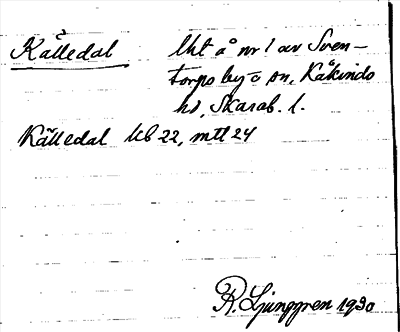 Källedal Uht å nr 1 av Sven-
torps by o sn, Kåkinds
hd, Skarab. l.
Källedal Kb 22, mtl 24
R. Ljunggren 1930